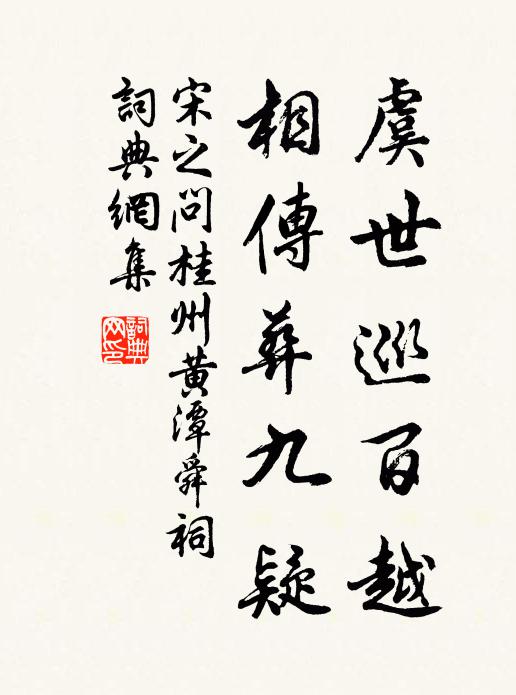 虞世巡百越
相傳葬九疑
宋之問桂州黃潭舜祠
詞典網集
詞典网印